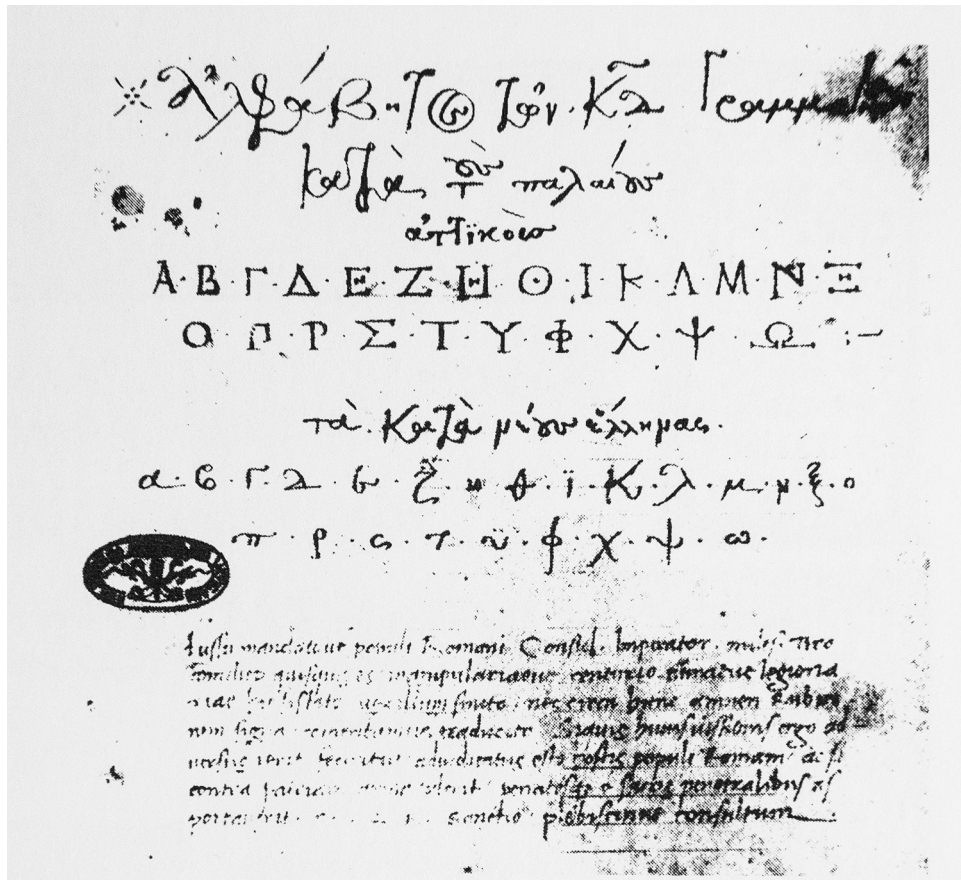 Ἀλφάβητος τῶν κδ Γραμμάτων
κατὰ παλαιοὺς
ἀττϊκοὺς
Α · Β · Γ · Δ · Ε · Ζ · Η · Θ · Ι · Κ · Λ · Μ · Ν · Ξ
Ο · Π · Ρ · Σ · Τ · Υ · Φ · Χ · Ψ · Ω :-
τὰ κατὰ ἕλληνας.
α · β · γ · δ · ε · ζ · η · θ · ϊ · κ · λ · μ · ν · ξ · ο
π · ρ · ς · τ · ϋ · φ · χ · ψ · ω ·
Iussu mandatuve populi Romani Consul Imperator miles Tiro
quisquis es manipulariaeve centurio legiona
riae sistito vexillum sinito nec citra hunc amnem Rubico
nem signa traducito Siquis ergo ad
versus ierit feceritve adiudicatus esto hostis populi Romani ac si
contra patriam penatesque e sacris penetralibus as
portaverit sanctio plebiscitum consultum